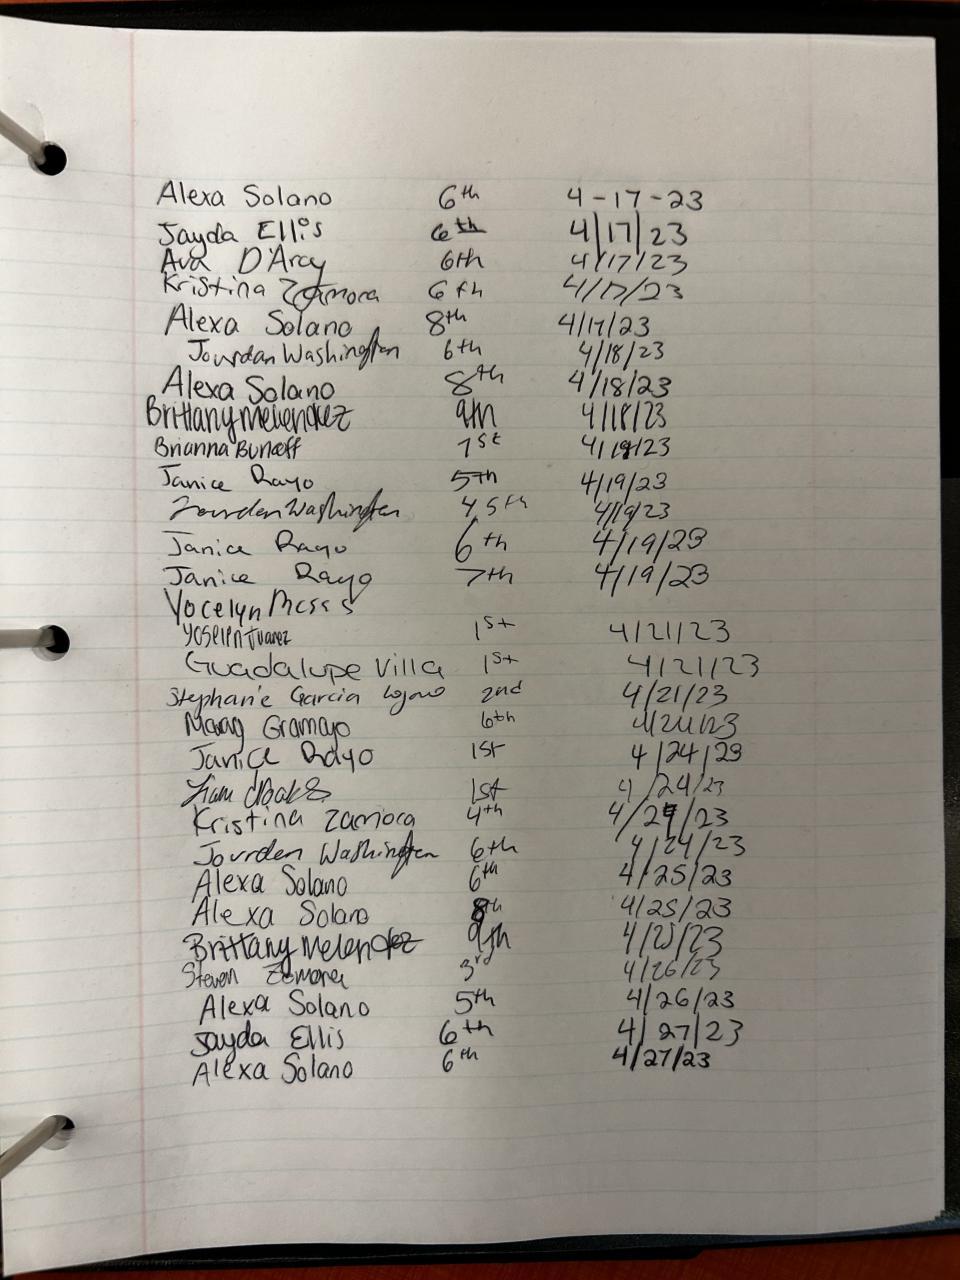 Alexa Solano 6th 4-17-23
Jayda Ellis 6th 4/17/23
Ava D'Arcy 6th 4/17/23
Kristina Zamora 6th 4/17/23
Alexa Solano 8th 4/17/23
Jourdan Washington 6th 4/18/23
Alexa Solano 8th 4/18/23
Brittany Melendez 9th 4/18/23
Brianna 1st 4/19/23
Janice Rayo 5th 4/19/23
Jourden Washington 4,5th 4/19/23
Janice Rayo 6th 4/19/23
Janice Rayo 7th 4/19/23
Yocelyn
Yoselin Juarez 1st 4/21/23
Guadalupe Villa 1st 4/21/23
Stephanie Garcia 2nd 4/21/23
Gramayo 6th 4/24/23
Janice Rayo 1st 4/24/23
1st 4/24/23
Kristina Zamora 4th 4/24/23
Jourden Washington 6th 4/24/23
Alexa Solano 6th 4/25/23
Alexa Solano 8th 4/25/23
Brittany Melendez 9th 4/25/23
Steven Zamora 3rd 4/26/23
Alexa Solano 5th 4/26/23
Jayda Ellis 6th 4/27/23
Alexa Solano 6th 4/27/23